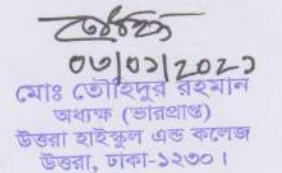 ০৩/০১/2021
মোঃ তৌহিদুর রহমান
অধ্যক্ষ (ভারপ্রাপ্ত)
উত্তরা হাইস্কুল এন্ড কলেজ
উত্তরা, ঢাকা-১২৩০।